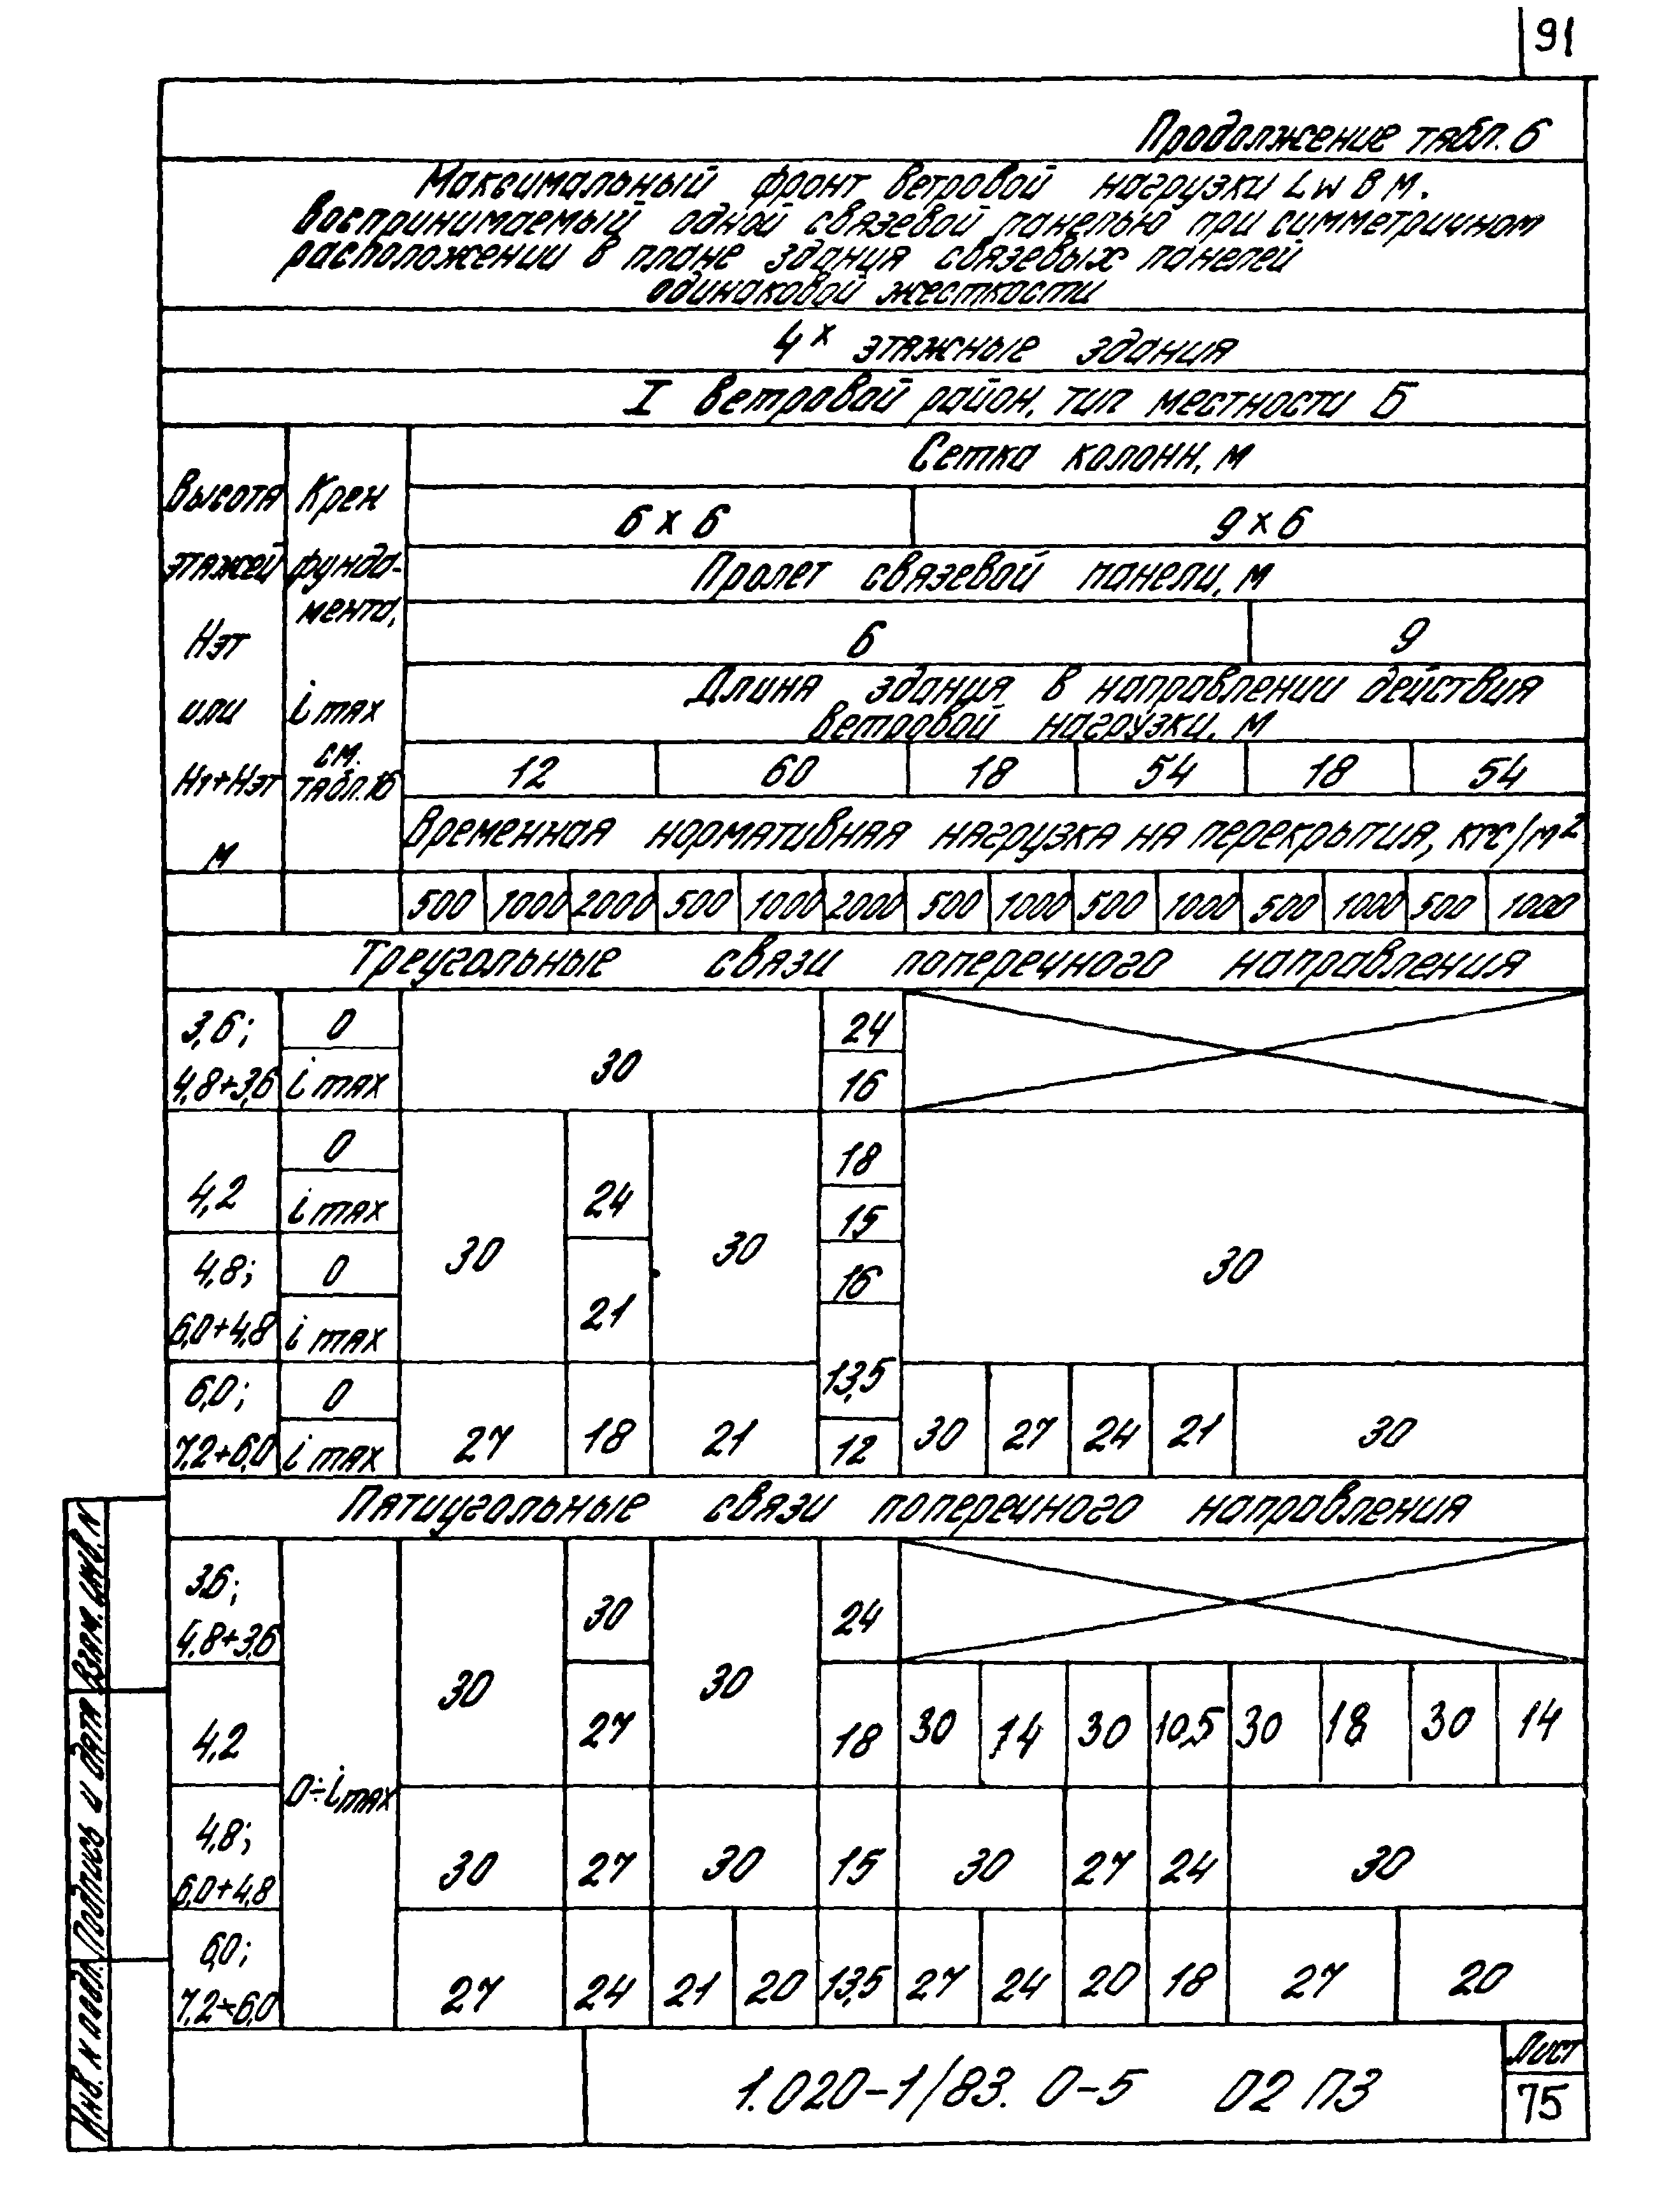 91
Продолжение табл. 6
Максимальный фронт ветровой нагрузки Lw в м.
воспринимаемый одной связевой панелью при симметричном
расположении в плане здания связевых панелей
одинаковой жесткости
4х этажные здания
I ветровой район, тип местности Б
Высота этажей Нэт или Н1+Нэт м
Крен фунда-мента, i max см. табл.16
Сетка колонн, м
6 х 6 9 х 6
Пролет связевой панели, м
6 9
Длина здания в направлении действия
ветровой нагрузки, м
12 60 18 54 18 54
Временная нормативная нагрузка на перекрытия, кгс/м2
500 1000 2000 500 1000 2000 500 1000 500 1000 500 1000 500 1000
Треугольные связи поперечного направления
3,6; 0 24
30
4,8+3,6 i max 16
0 18
4,2 24
i max 15
30 30 30
4,8; 0 16
21
6,0+4,8 i max
13,5
6,0; 0
27 18 21 30 27 24 21 30
7,2+6,0 i max 12
Пятиугольные связи поперечного направления
3.6;
30 24
4,8+3,6
30 30
4,2 27 18 30 14 30 10,5 30 18 30 14
0÷i max
4,8;
30 27 30 15 30 27 24 30
6,0+4,8
6,0;
27 24 21 20 13,5 27 24 20 18 27 20
7,2+6,0
Взам. инв. N
Подпись и дата
Инв. N подл.
1.020-1/83. 0-5 02 ПЗ
Лист
75